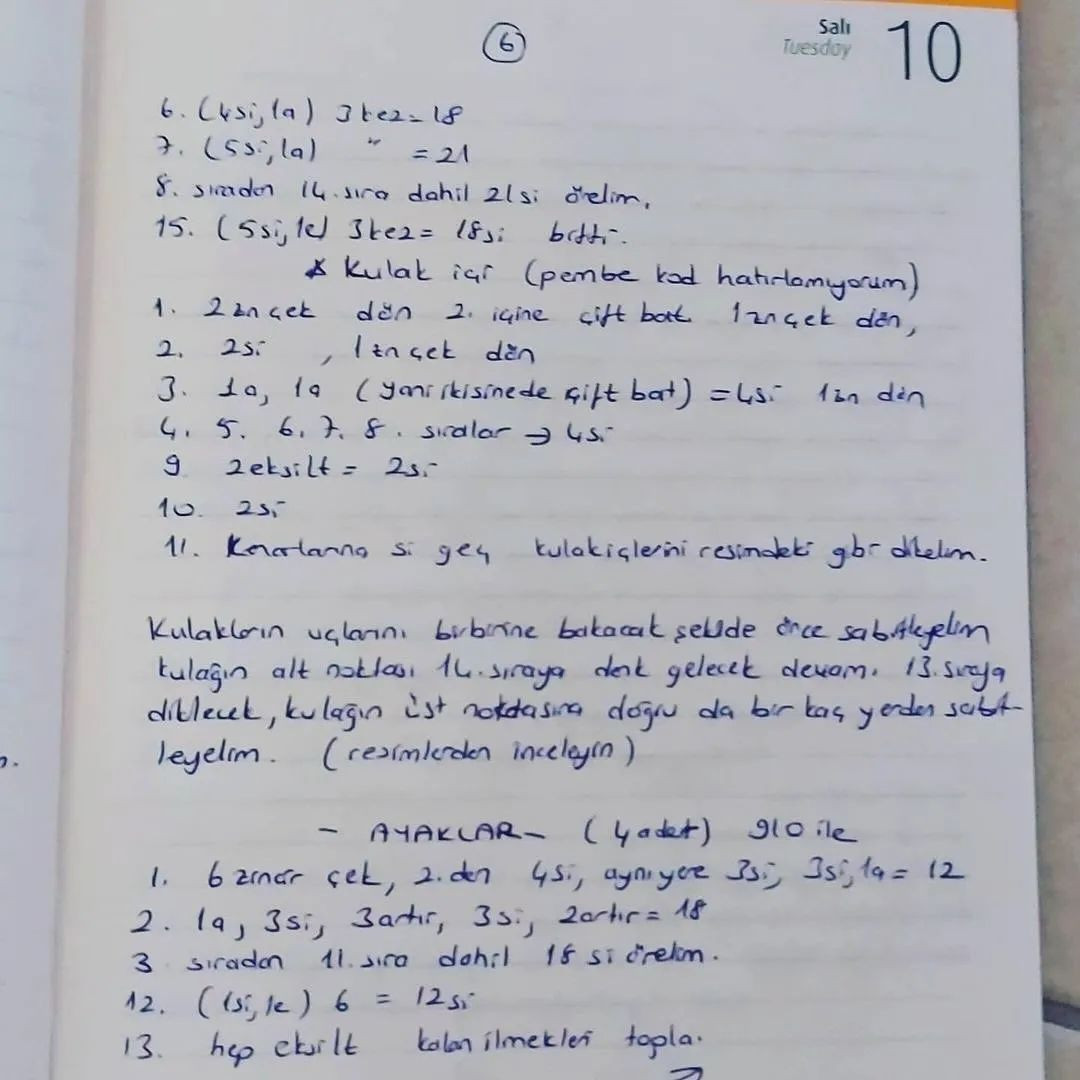 6
Salı
Tuesday
10
6. (4si, 1a) 3 kez = 18
7. (5si, 1a) " = 21
8. sıradan 14. sıra dahil 21si örelim.
15. (5si, 1e) 3kez = 18si bitti.
* Kulak içi (pembe kod hatırlamıyorum)
1. 2 zn çek dön 2. içine çift bat 1 zn çek dön,
2. 2si , 1 zn çek dön
3. 1a, 1a (yani ikisinede çift bat) = 4si 1zn dön
4. 5. 6. 7. 8. sıralar → 4si
9 2 eksilt = 2si
10. 2si
11. Kenarlarına si geç kulakiçlerini resimdeki gibi dikelim.
Kulakların uçlarını birbirine bakacak şekilde önce sabitleyelim
kulağın alt noktası 14. sıraya denk gelecek devamı 13. sıraya
dikilecek, kulağın üst noktasına doğru da bir kaç yerden sabit-
leyelim. (resimlerden inceleyin)
- AYAKLAR - (4 adet) 910 ile
1. 6 zincir çek, 2. den 4si, aynı yere 3si, 3si, 1a = 12
2. 1a, 3si, 3artır, 3si, 2artır = 18
3 sıradan 11. sıra dahil 18 si örelim.
12. (1si, 1e) 6 = 12si
13. hep eksilt kalan ilmekleri topla.